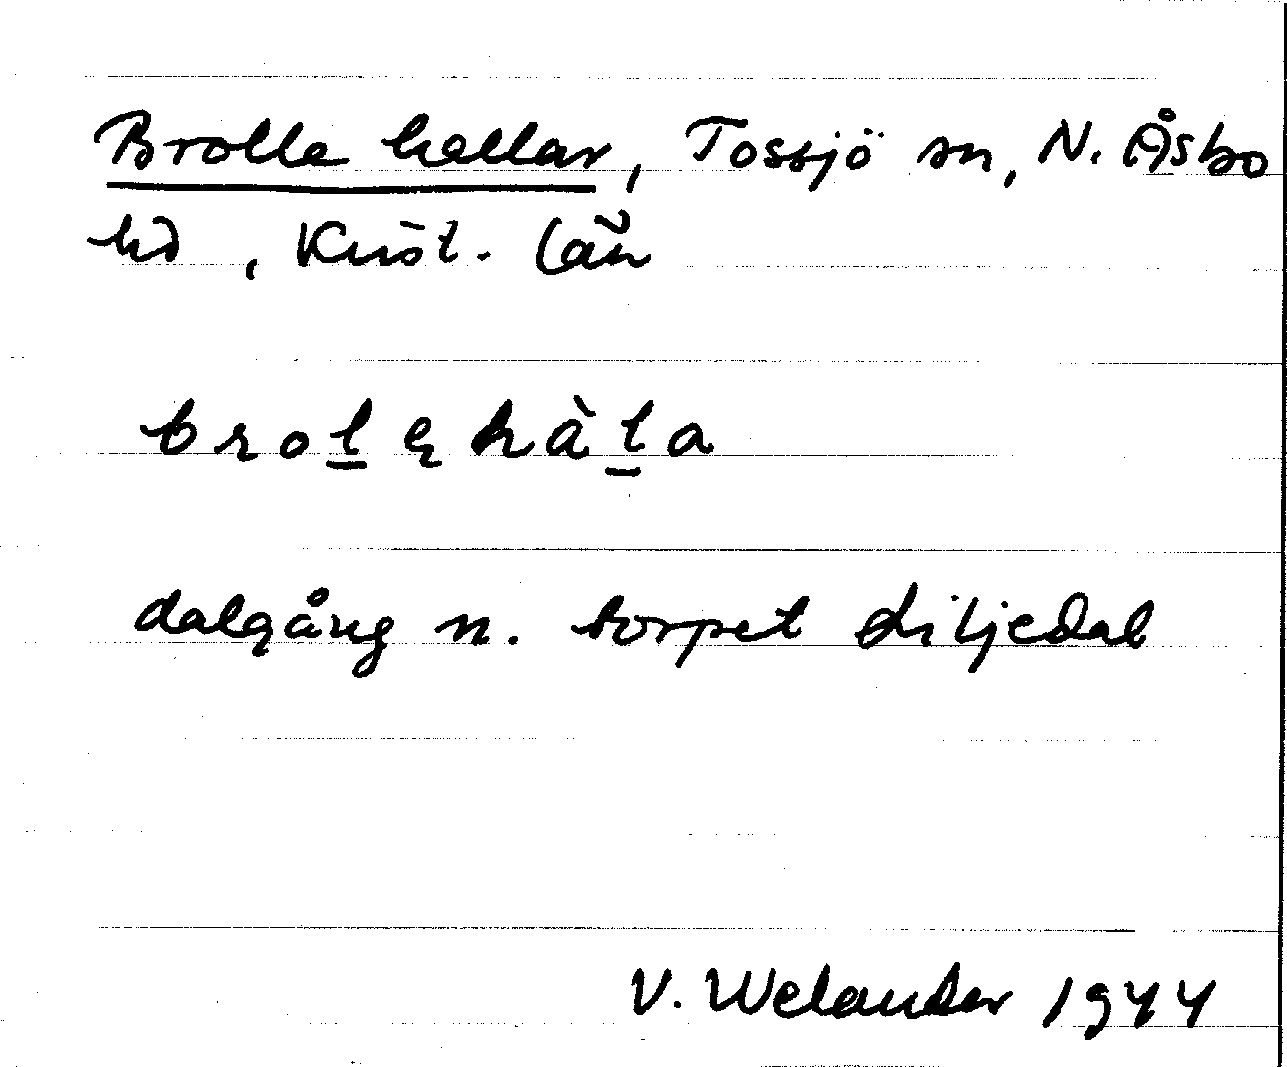 Brolle hallar, Tossjö sn, N. Åsbo
hd, Krist. län
brol̲ę hàl̲a
dalgång n. torpet Liljedal
V. Welander 1944